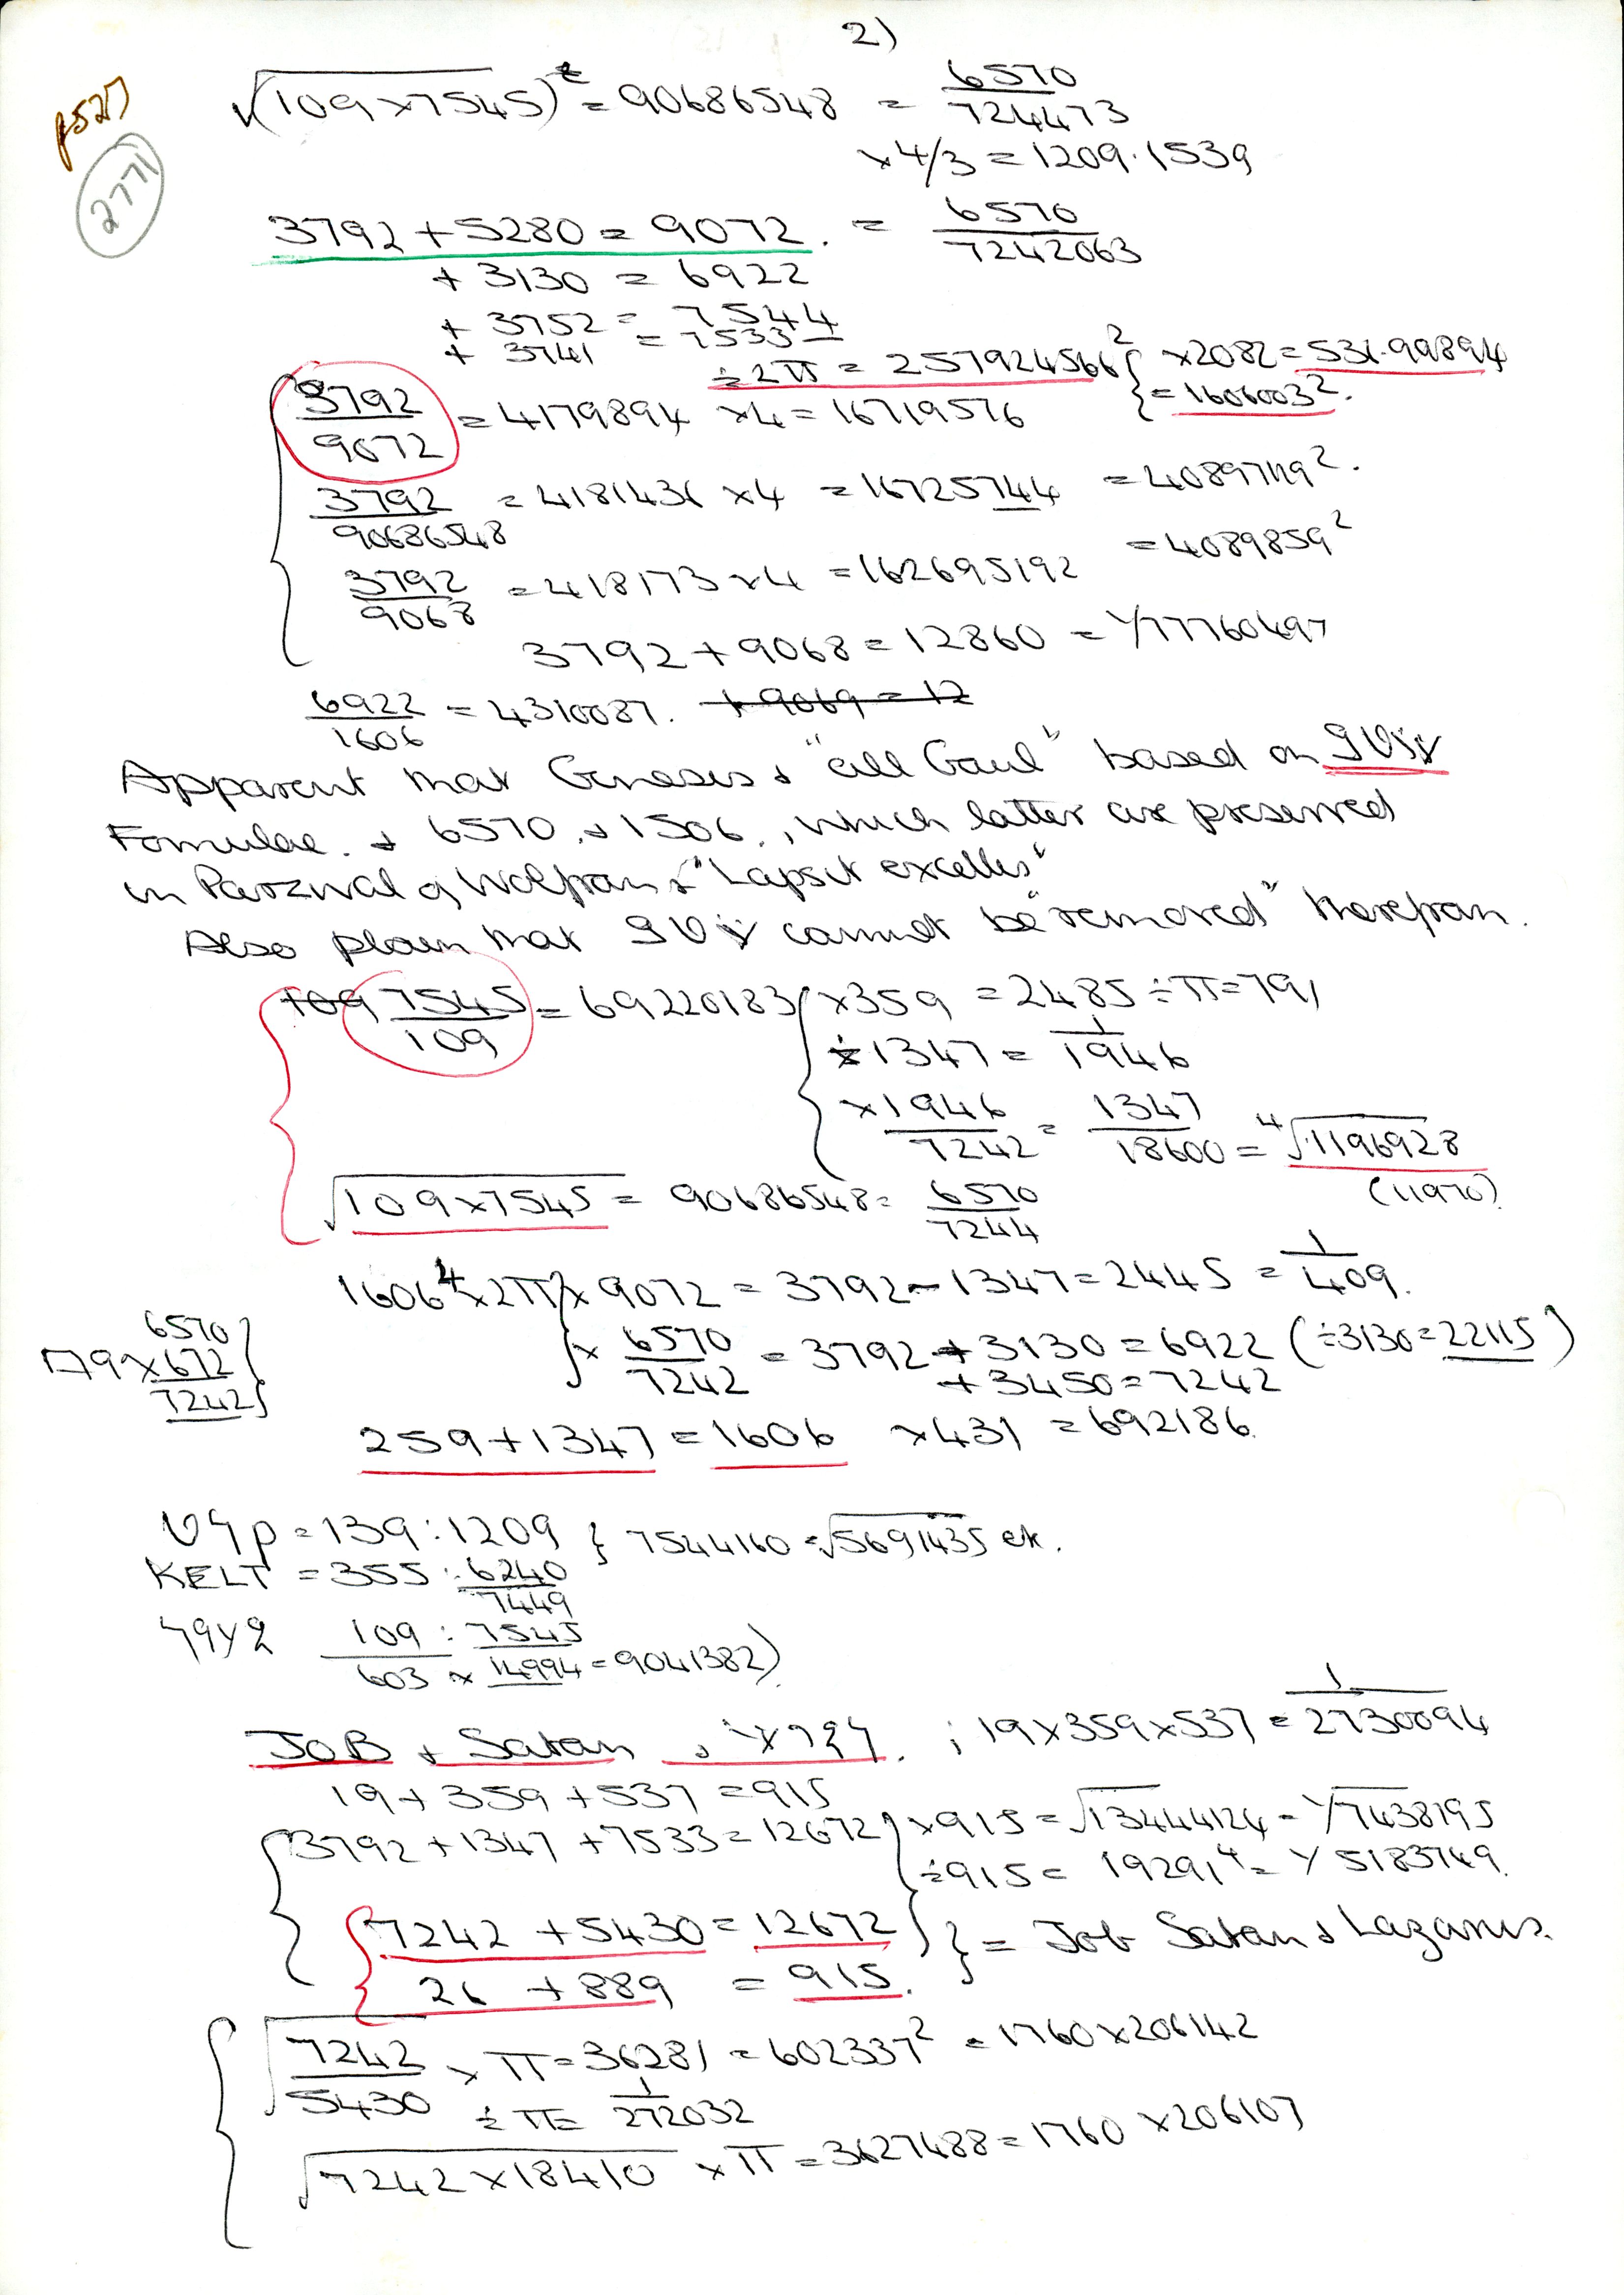 2)
p527
2771
√(109×7545)² = 90686548 = 6570/724473
×4/3 = 1209.1539
3792 + 5280 = 9072. = 6570/7242063
+ 3130 = 6922
+ 3752 = 7544
+ 3741 = 7533
÷2π = 257924566² } ×2082 = 531.99894
= 1606003².
3792/9072 = 4179894 ×4 = 16719576
3792/90686548 = 4181436 ×4 = 16725744 = 40897119².
3792/9068 = 418173 ×4 = 162695192 = 4089859²
3792 + 9068 = 12860 = 1/77760497
6922/1606 = 4310087. + 9069 = 12
Apparent that Geneses & "all Gaul" based on
Fomulae. & 6570. & 1506., which latter are preserved
in Parzival of Wolfram & "Lapsit excelles"
Also plain that cannot be "removed" therefrom.
109 7545/109 = 69220183 } ×359 = 2485 ÷ π = 791
÷1347 = 1/1946
×1946/7242 = 1347/18600 = ⁴√.1196928
(11970)
√109×7545 = 90686548 = 6570/7244
1606⁴×2π } × 9072 = 3792 - 1347 = 2445 = 1/409.
× 6570/7242 = 3792 + 3130 = 6922 (÷3130 = 22115)
+ 3450 = 7242
6570
179 × 672
7242
259 + 1347 = 1606 ×431 = 692186.
= 139 : 1209 } 7544160 = √5691435 etc.
KELT = 355 : 6240
7449
109 : 7545
603 × 14994 = 9041382)
JOB & Satan & ; 19×359×537 = 1/2730094
19 + 359 + 537 = 915
3792 + 1347 + 7533 = 12672 } ×915 = √13444124 = 1/7438195
÷915 = 19291⁴ = 1/5183749.
7242 + 5430 = 12672 } = Job Satan & Lazarus.
26 + 889 = 915.
√7242/5430 × π = 36281 = 602337² = 1760×206142
÷ π = 1/272032
√7242×18410 × π = 3627488 = 1760 ×206107